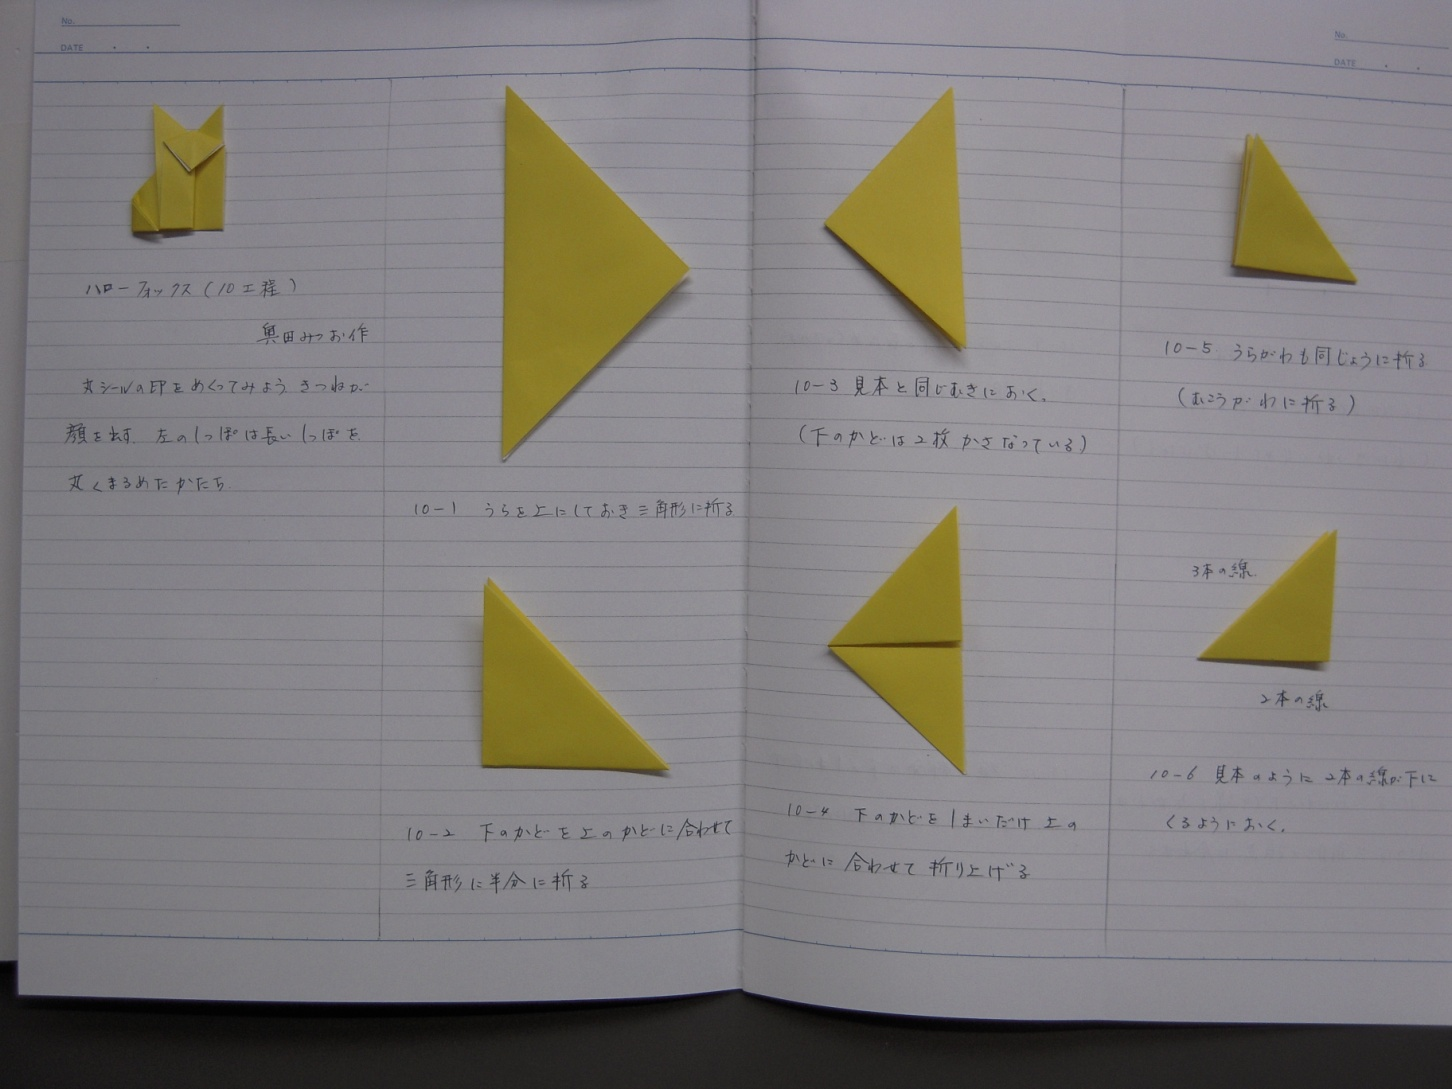 No.
DATE
ハローフォックス(10工程)
奥田みつお作
丸シールの印をめくってみよう きつねが
顔を出す. 左のしっぽは長いしっぽを
丸くまるめたかたち.
10-1 うらを上にしておき三角形に折る
10-2 下のかどを上のかどに合わせて
三角形に半分に折る
No.
DATE
10-3 見本と同じむきにおく.
(下のかどは2枚かさなっている)
10-4 下のかどを1まいだけ上の
かどに合わせて折り上げる
10-5 うらがわも同じように折る
(むこうがわに折る)
3本の線
2本の線
10-6 見本のように2本の線が下に
くるようにおく.